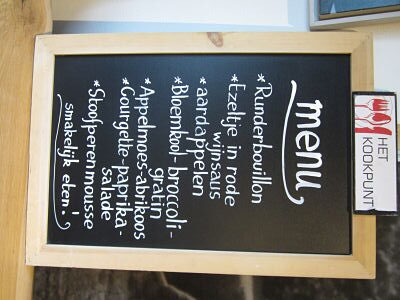 HET
KOOKPUNT
menu
*Runderbouillon
*Ezeltje in rode
wijnsaus
*aardappelen
*Bloemkool-broccoli-
gratin
*Appelmoes-abrikoos
*Courgette-paprika-
salade
*Stoofperenmousse
smakelijk eten!